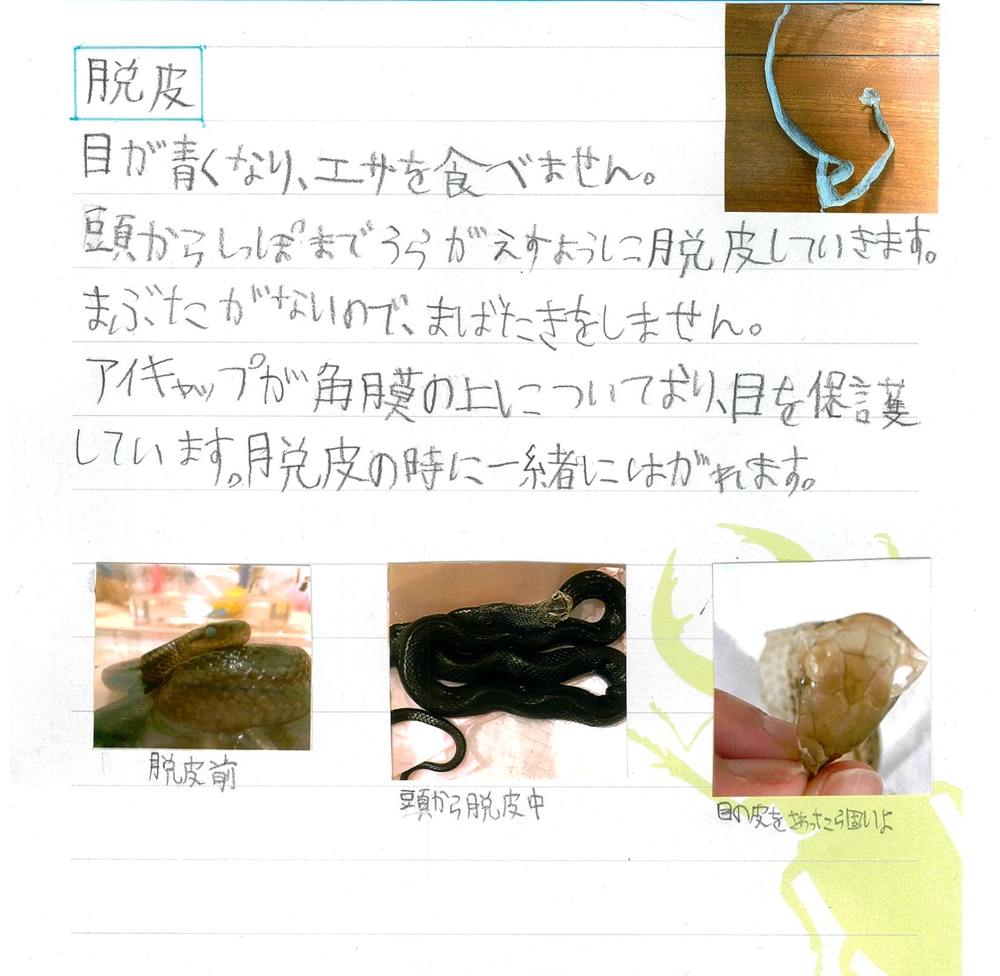 脱皮
目が青くなり、エサを食べません。
頭からしっぽまでうらがえすように脱皮していきます。
まぶたがないので、まばたきをしません。
アイキャップが角膜の上についており、目を保護
しています。脱皮の時に一緒にはがれます。
脱皮前
頭から脱皮中
目の皮をさわったら固いよ